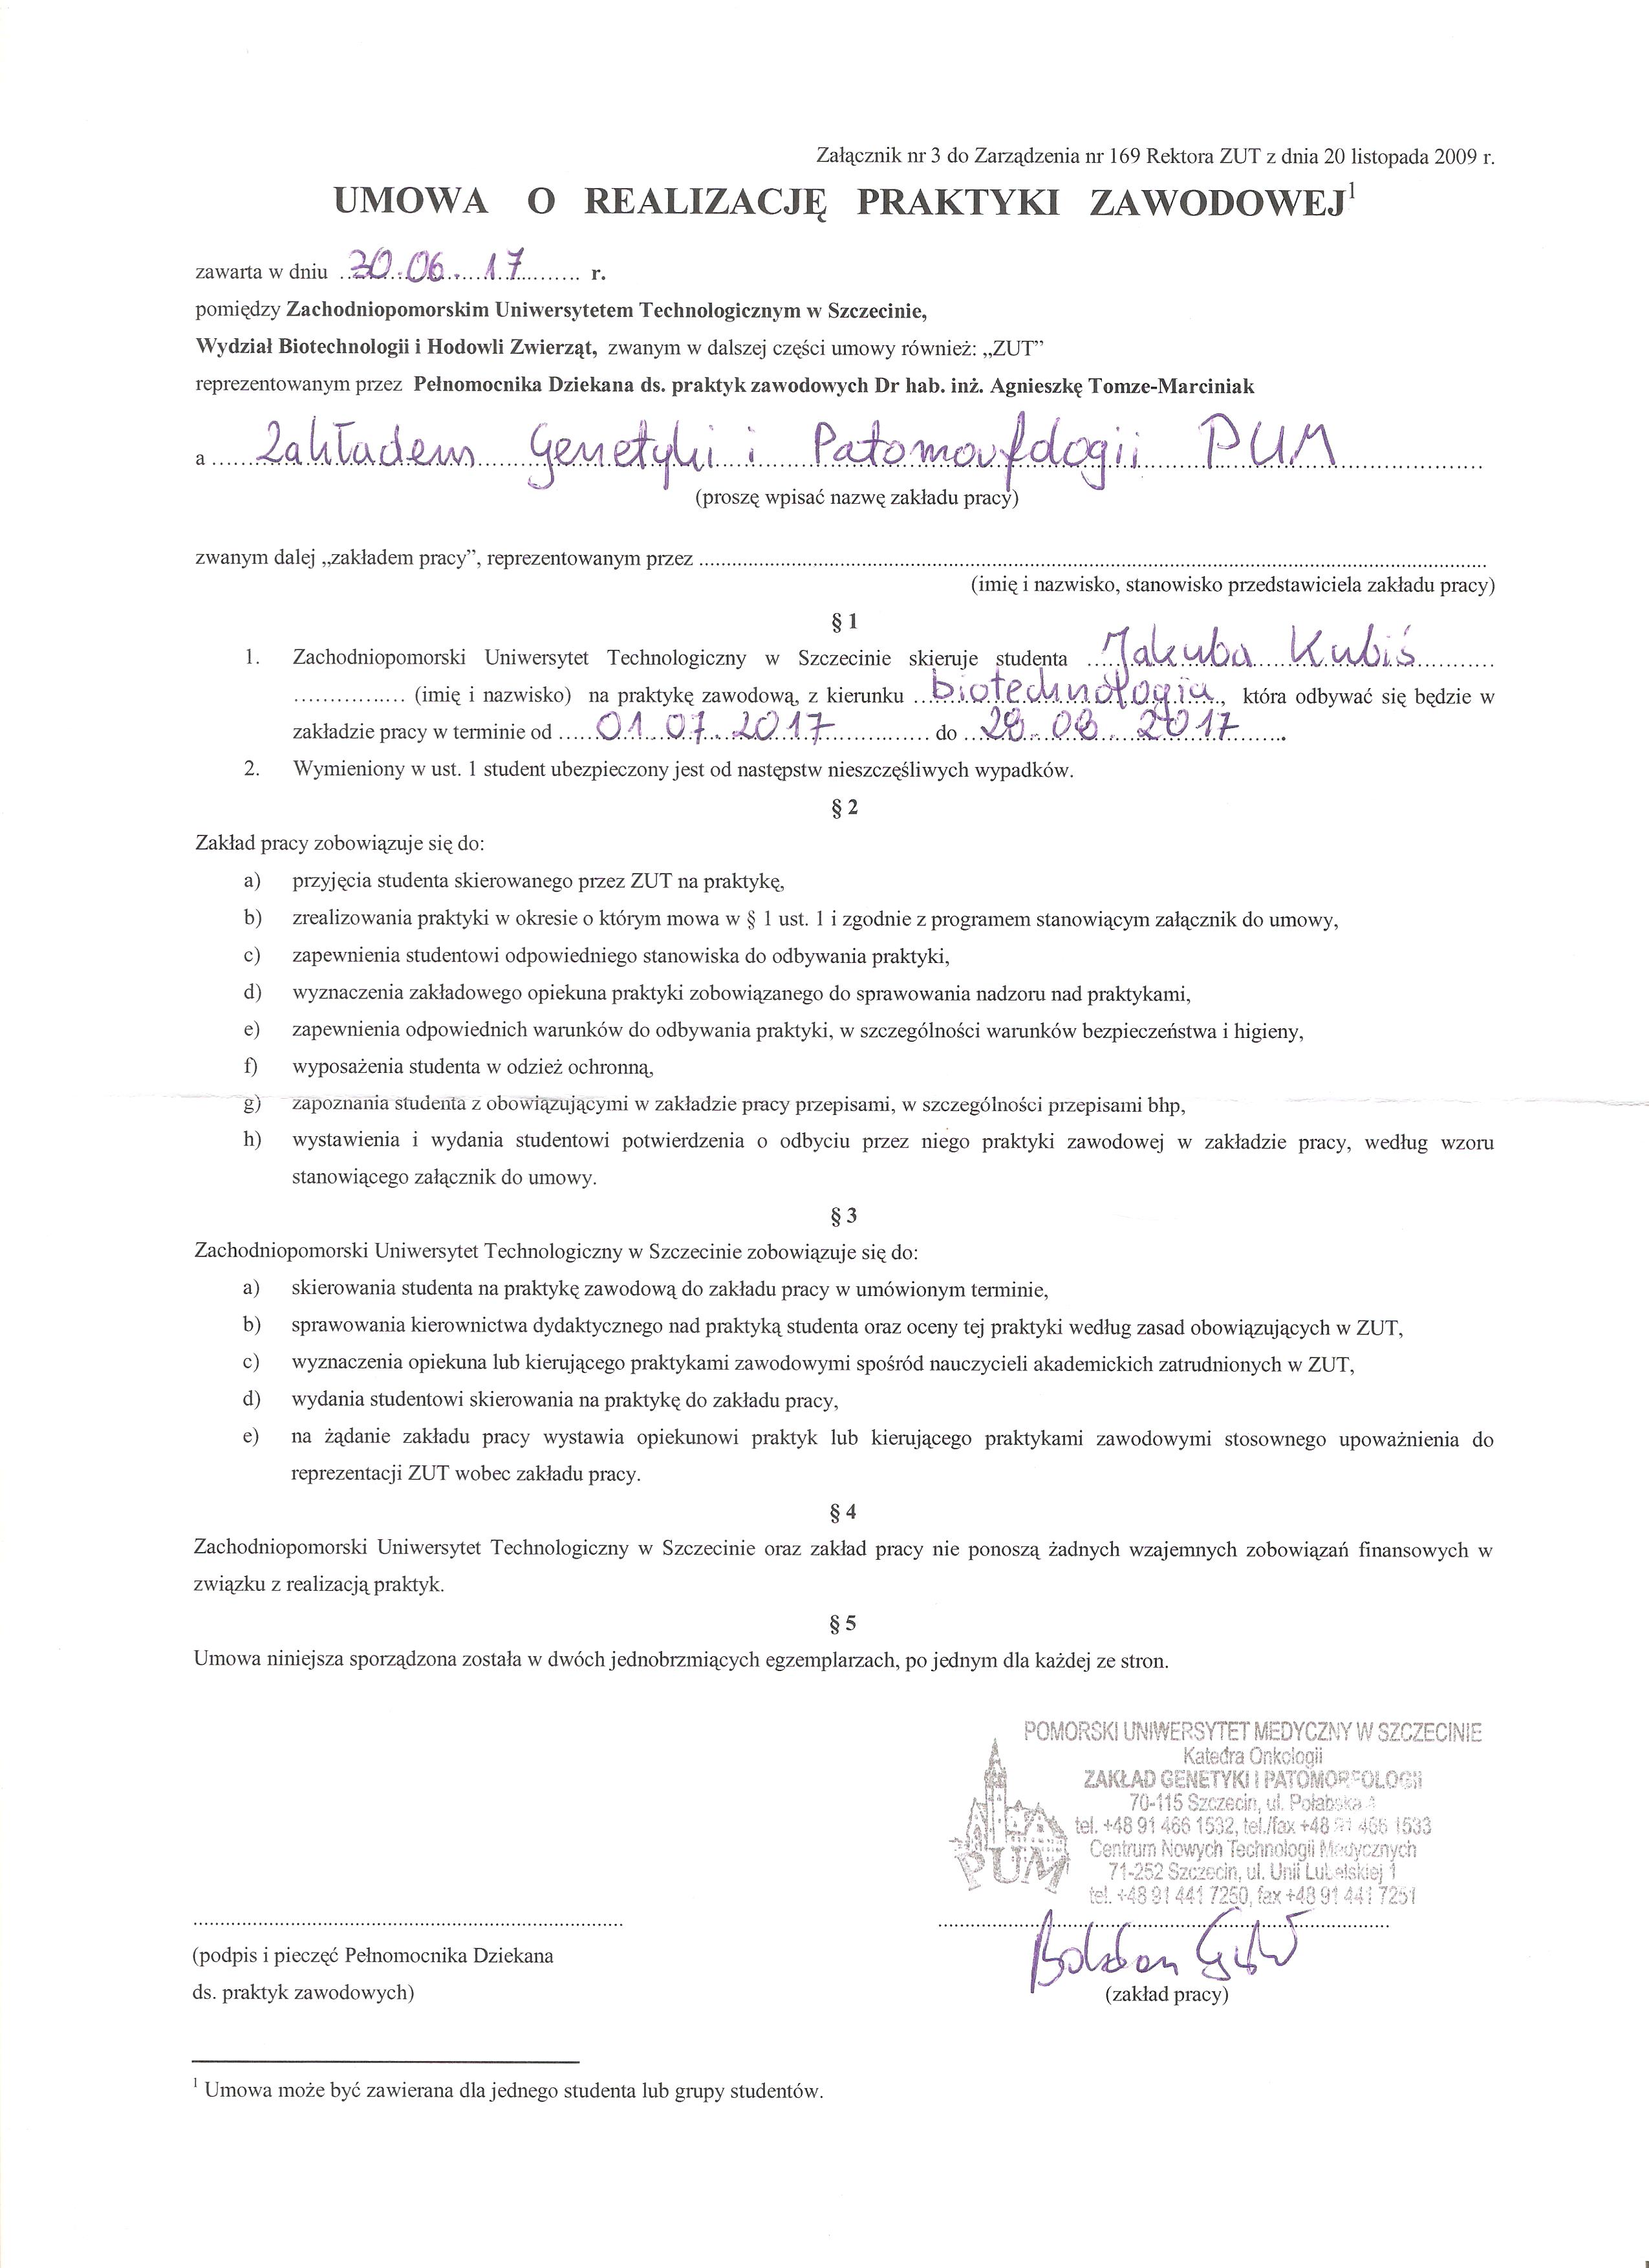 Załącznik nr 3 do Zarządzenia nr 169 Rektora ZUT z dnia 20 listopada 2009 r.
UMOWA O REALIZACJĘ PRAKTYKI ZAWODOWEJ¹
zawarta w dniu 30.06.17 r.
pomiędzy Zachodniopomorskim Uniwersytetem Technologicznym w Szczecinie,
Wydział Biotechnologii i Hodowli Zwierząt, zwanym w dalszej części umowy również: „ZUT”
reprezentowanym przez Pełnomocnika Dziekana ds. praktyk zawodowych Dr hab. inż. Agnieszkę Tomze-Marciniak
a Zakładem Genetyki i Patomorfologii PUM
(proszę wpisać nazwę zakładu pracy)
zwanym dalej „zakładem pracy”, reprezentowanym przez
(imię i nazwisko, stanowisko przedstawiciela zakładu pracy)
§ 1
1. Zachodniopomorski Uniwersytet Technologiczny w Szczecinie skieruje studenta Jakuba Kubiś
(imię i nazwisko) na praktykę zawodową, z kierunku biotechnologia, która odbywać się będzie w
zakładzie pracy w terminie od 01.07.2017 do 2017.
2. Wymieniony w ust. 1 student ubezpieczony jest od następstw nieszczęśliwych wypadków.
§ 2
Zakład pracy zobowiązuje się do:
a) przyjęcia studenta skierowanego przez ZUT na praktykę,
b) zrealizowania praktyki w okresie o którym mowa w § 1 ust. 1 i zgodnie z programem stanowiącym załącznik do umowy,
c) zapewnienia studentowi odpowiedniego stanowiska do odbywania praktyki,
d) wyznaczenia zakładowego opiekuna praktyki zobowiązanego do sprawowania nadzoru nad praktykami,
e) zapewnienia odpowiednich warunków do odbywania praktyki, w szczególności warunków bezpieczeństwa i higieny,
f) wyposażenia studenta w odzież ochronną,
g) zapoznania studenta z obowiązującymi w zakładzie pracy przepisami, w szczególności przepisami bhp,
h) wystawienia i wydania studentowi potwierdzenia o odbyciu przez niego praktyki zawodowej w zakładzie pracy, według wzoru
stanowiącego załącznik do umowy.
§ 3
Zachodniopomorski Uniwersytet Technologiczny w Szczecinie zobowiązuje się do:
a) skierowania studenta na praktykę zawodową do zakładu pracy w umówionym terminie,
b) sprawowania kierownictwa dydaktycznego nad praktyką studenta oraz oceny tej praktyki według zasad obowiązujących w ZUT,
c) wyznaczenia opiekuna lub kierującego praktykami zawodowymi spośród nauczycieli akademickich zatrudnionych w ZUT,
d) wydania studentowi skierowania na praktykę do zakładu pracy,
e) na żądanie zakładu pracy wystawia opiekunowi praktyk lub kierującego praktykami zawodowymi stosownego upoważnienia do
reprezentacji ZUT wobec zakładu pracy.
§ 4
Zachodniopomorski Uniwersytet Technologiczny w Szczecinie oraz zakład pracy nie ponoszą żadnych wzajemnych zobowiązań finansowych w
związku z realizacją praktyk.
§ 5
Umowa niniejsza sporządzona została w dwóch jednobrzmiących egzemplarzach, po jednym dla każdej ze stron.
POMORSKI UNIWERSYTET MEDYCZNY W SZCZECINIE
Katedra Onkologii
ZAKŁAD GENETYKI I PATOMORFOLOGII
70-115 Szczecin, ul. Połabska
tel. +48 91 466 1532, tel./fax +48 91 466 1533
Centrum Nowych Technologii Medycznych
71-252 Szczecin, ul. Unii Lubelskiej 1
tel. +48 91 441 7250, fax +48 91 441 7251
PUM
(podpis i pieczęć Pełnomocnika Dziekana
ds. praktyk zawodowych)
(zakład pracy)
¹ Umowa może być zawierana dla jednego studenta lub grupy studentów.